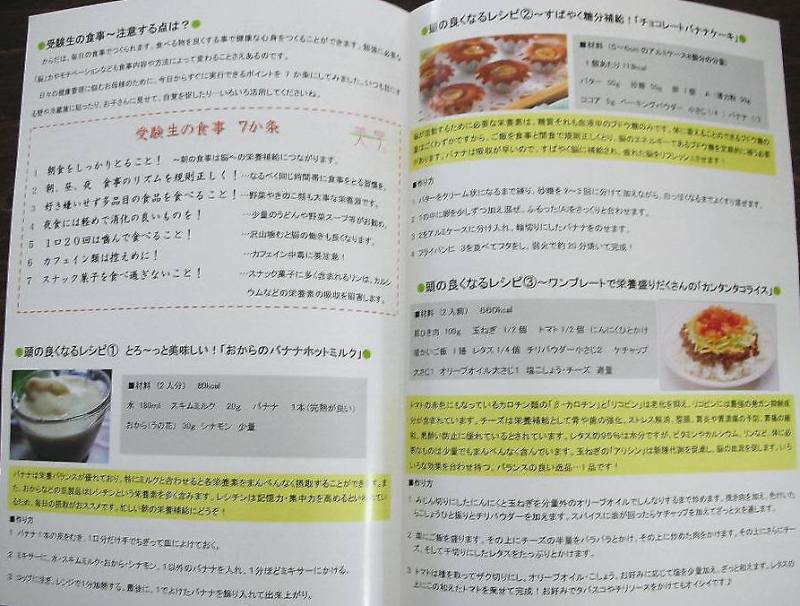 ●受験生の食事～注意する点は？●
からだは、毎日の食事でつくられます。食べる物を良くする事で健康な心身をつくることができます。勉強に必要な
「脳」力やモチベーションなども食事内容や方法によって変わることさえあるのです。
日々の健康管理に悩むお母様のために、今日からすぐに実行できるポイントを 7 か条にしてみました。いつも目に
る壁や冷蔵庫に貼ったり、お子さんに見せて、自覚を促したり…いろいろ活用してくださいね。
受験生の食事 7か条
1 朝食をしっかりとること！ ～朝の食事は脳への栄養補給につながります。
2 朝、昼、夜 食事のリズムを規則正しく！ …なるべく同じ時間帯に食事をとる習慣を。
3 好き嫌いせず多品目の食品を食べること！ …野菜やきのこ類も大事な栄養源です。
4 夜食には軽めで消化の良いものを！ …少量のうどんや野菜スープ等がお勧め。
5 1口20回は噛んで食べること！ …沢山噛むと脳の働きも良くなります。
6 カフェイン類は控えめに！ …カフェイン中毒に要注意！
7 スナック菓子を食べ過ぎないこと！ …スナック菓子に多く含まれるリンは、カルシ
ウムなどの栄養素の吸収を阻害します。
●頭の良くなるレシピ① とろ～っと美味しい！「おからのバナナホットミルク」●
■材料 （2人分） 89kcal
水 180ml スキムミルク 20g バナナ 1本（完熟が良い）
おから（うの花） 30g シナモン 少量
バナナは栄養バランスが優れており、特にミルクと合わせると各栄養素をまんべんなく摂取することができます。ま
た、おからなどの豆製品はレシチンという栄養素を多く含みます。レシチンは記憶力・集中力を高めるといわれてい
るため、毎日の摂取がおススメです。忙しい朝の栄養補給にどうぞ！
■作り方
1 バナナ1本の皮をむき、1口分だけ手でちぎって皿によけておく。
2 ミキサーに、水・スキムミルク・おから・シナモン、1以外のバナナを入れ、1分ほどミキサーにかける。
3 コップに注ぎ、レンジで1分加熱する。最後に、1でよけたバナナを飾り入れて出来上がり。
●頭の良くなるレシピ②～すばやく糖分補給！「チョコレートバナナケーキ」●
■材料（5～6cmのアルミケース8個分の分量）
1個あたり119kcal
バター 50g 砂糖 50g 卵 1個 薄力粉 90g
ココア 5g ベーキングパウダー 小さじ バナナ
脳が活動するために必要な栄養素は、糖質それも血液中のブドウ糖のみです。体に蓄えることのできるブドウ糖の
量はごくわずかですから、ご飯を食事と間食で規則正しくとり、脳のエネルギーであるブドウ糖を定期的に補う必要
があります。バナナは吸収が早いので、すばやく脳に補給され、疲れた脳をリフレッシュさせます！
■作り方
1 バターをクリーム状になるまで練り、砂糖を2～3回に分けて加えながら、白っぽくなるまでよくすり混ぜます。
2 1の中に卵を少しずつ加え混ぜ、ふるった(A)をさっくりと合わせます。
3 2をアルミケースに分け入れ、輪切りにしたバナナをのせます。
4 フライパンに 3を並べてフタをし、弱火で約20分焼いて完成！
●頭の良くなるレシピ③～ワンプレートで栄養盛りだくさんの「カンタンタコライス」●
■材料（2人前） 660kcal
豚ひき肉 100g 玉ねぎ 1/2個 トマト1/2個 にんにくひとかけ
温かいご飯 1膳 レタス1/4個 チリパウダー小さじ2 ケチャップ
大さじ1 オリーブオイル大さじ1 塩こしょう・チーズ 適量
トマトの赤色にもなっているカロチン類の「β-カロチン」と「リコピン」は老化を抑え、リコピンには最強の発ガン抑制成
分が含まれています。チーズは栄養補給として骨や歯の強化、ストレス解消、整腸、胃炎や胃潰瘍の予防、胃腸の緩
和、悪酔い防止に優れているとされています。レタスの95%は水分ですが、ビタミンやカルシウム、リンなど、体に必
要なものは少量でもまんべんなく含んでいます。玉ねぎの「アリシン」は新陳代謝を促進し、脳の血流を促します。いろ
いろな効果を合わせ持つ、バランスの良い逸品…1品です！
■作り方
1 みじん切りにしたにんにくと玉ねぎを分量外のオリーブオイルでしんなりするまで炒めます。挽き肉を加え、色付いた
らこしょうひと振りとチリパウダーを加えます。スパイスに油が回ったらケチャップを加えてざっと火を通します。
2 皿にご飯を盛ります。その上にチーズの半量をパラパラとかけ、その上に炒めた肉をかけます。その上にさらにチー
ズ、そして千切りにしたレタスをたっぷりとかけます。
3 トマトは種を取ってザク切りにし、オリーブオイル・こしょう、お好みに応じて塩を少量加え、ざっと和えます。レタスの
上にこの和えたトマトを乗せて完成！お好みでタバスコやチリソースをかけてもオイシイです♪